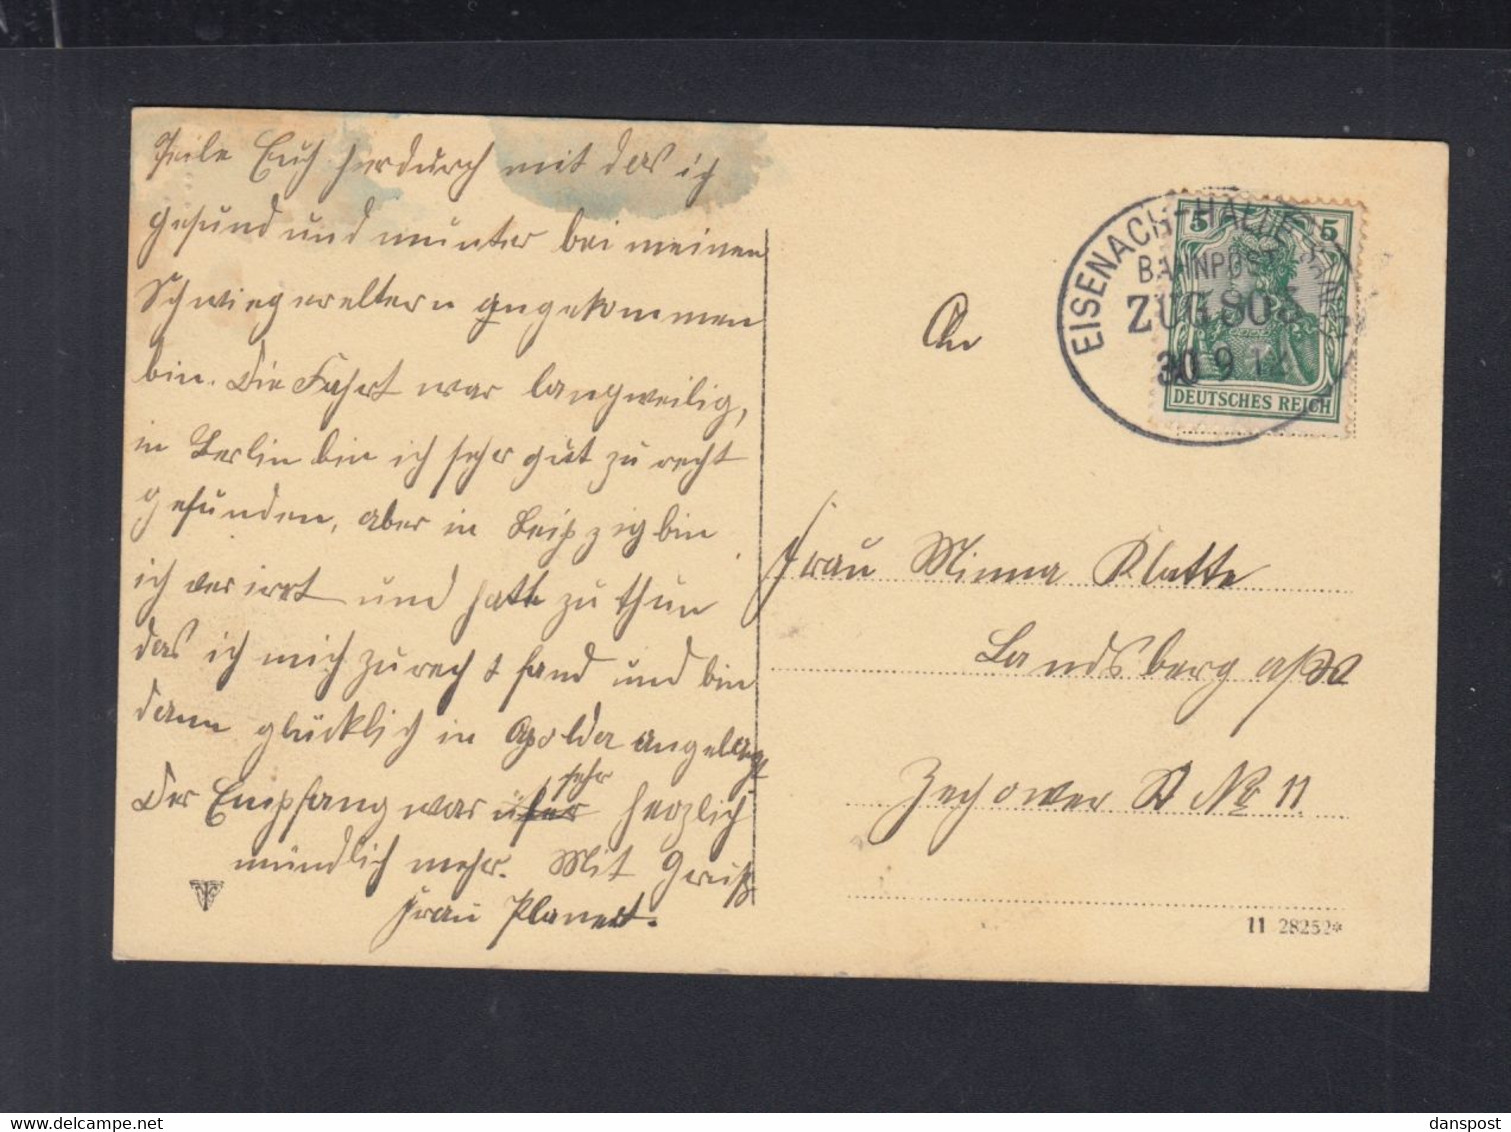 Teile Euch hierdurch mit das ich
gesund und munter bei meinen
Schwiegereltern angekommen
bin. Die Fahrt war langweilig,
in Berlin bin ich sehr gut zu recht
gefunden, aber in Leipzig bin
ich verirrt und hatte zu thun
das ich mich zurecht fand und bin
dann glücklich in Apolda angelangt
Der Empfang war sehr herzlich
mündlich mehr. Mit Gruß
Frau Planert.
An
Frau Minna Klatte
Landsberg a/W
Zechower St No 11
EISENACH-HALLE
BAHNPOST
ZUG 803
30 9 12
5 5
DEUTSCHES REICH
11 28252*
danspost